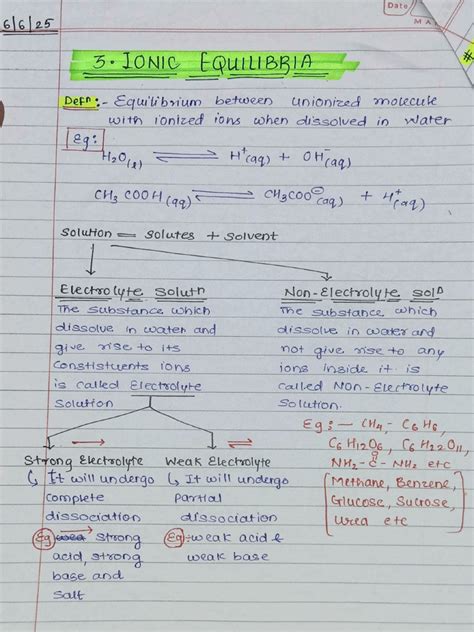 Date
MA
6/6/25
#
3. IONIC EQUILIBRIA
Defn :- Equilibrium between unionized molecule
with ionized ions when dissolved in water
Eg:
H2O(l) ⇌ H+(aq) + OH-(aq)
CH3COOH(aq) ⇌ CH3COO⊖(aq) + H+(aq)
Solution = Solutes + Solvent
Electrolyte Solutn
The substance which
dissolve in water and
give rise to its
constistuents ions
is called Electrolyte
Solution
Non-Electrolyte soln
The substance which
dissolve in water and
not give rise to any
ions inside it is
called Non-Electrolyte
Solution.
Eg :- CH4 - C6H6,
C6H12O6, C6H22O11,
NH2-C-NH2 etc
O
[Methane, Benzene,
Glucose, Sucrose,
Urea etc]
→
Strong Electrolyte
↳ It will undergo
complete
dissociation
Eg strong
acid, strong
base and
salt
⇌
Weak Electrolyte
↳ It will undergo
Partial
dissociation
Eg:- weak acid &
weak base